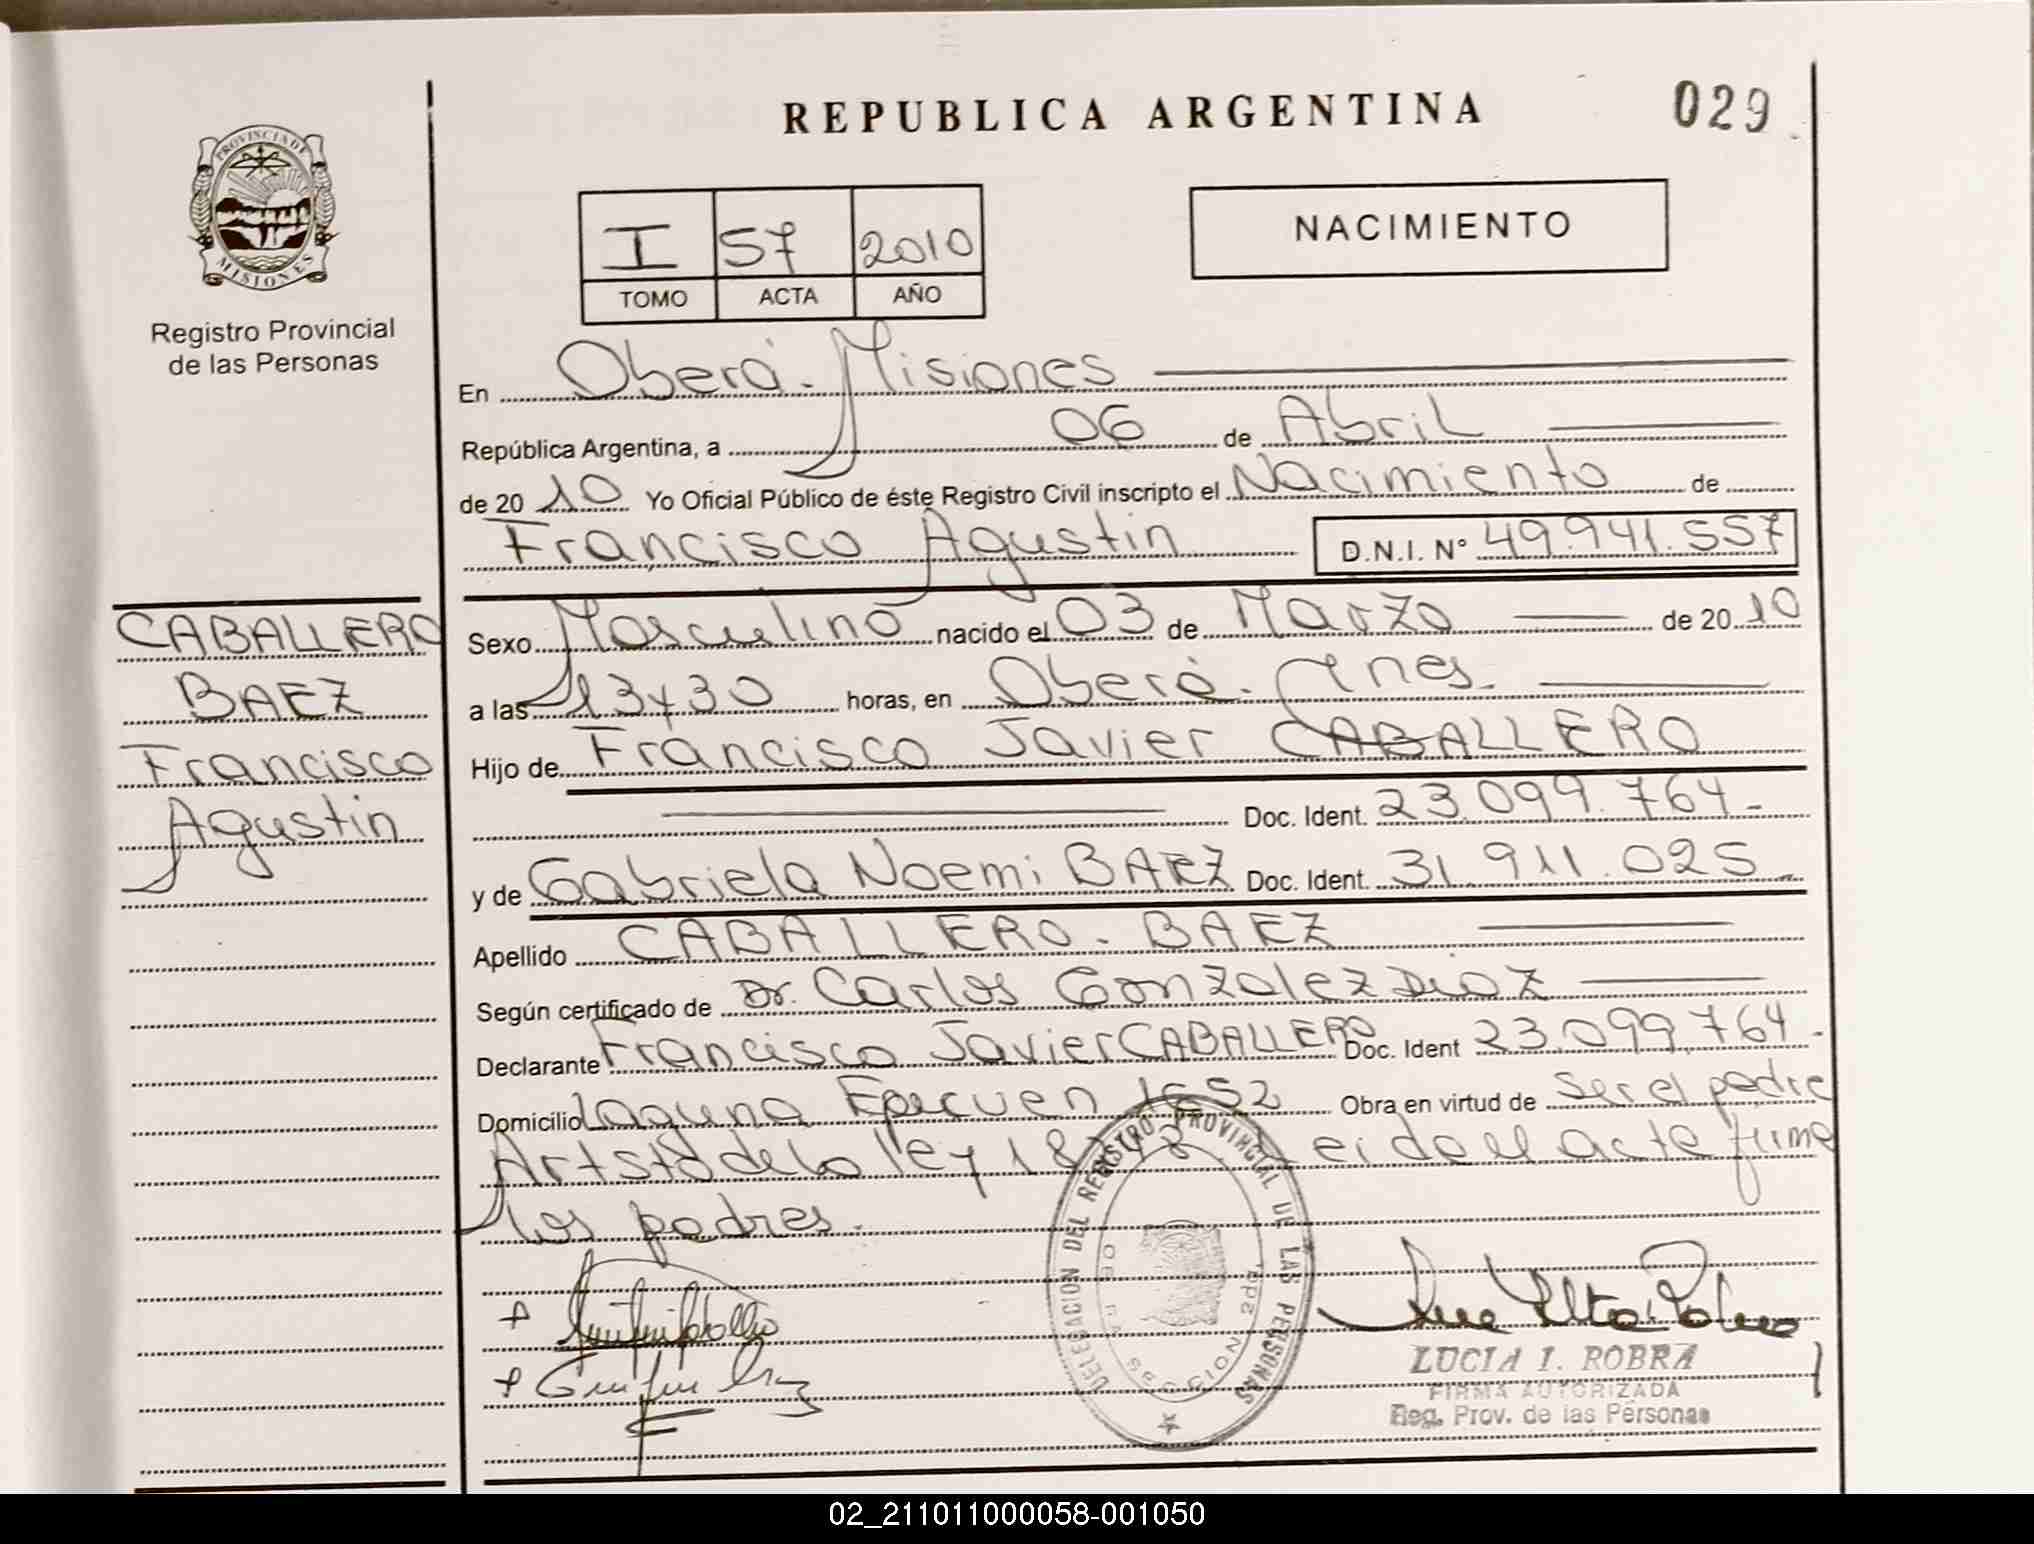 REPUBLICA ARGENTINA
029
PROVINCIA DE
MISIONES
Registro Provincial
de las Personas
I 57 2010
TOMO ACTA AÑO
NACIMIENTO
En Oberá - Misiones
República Argentina, a 06 de Abril
de 2010 Yo Oficial Público de éste Registro Civil inscripto el Nacimiento de
Francisco Agustin D.N.I. Nº 49.941.557
CABALLERO
BAEZ
Francisco
Agustin
Sexo Masculino nacido el 03 de Marzo de 2010
a las 13 y 30 horas, en Oberá - Mnes.
Hijo de Francisco Javier CABALLERO
Doc. Ident. 23.099.764-
y de Gabriela Noemi BAEZ Doc. Ident. 31.911.025
Apellido CABALLERO - BAEZ
Según certificado de Dr. Carlos Gonzalez Diaz
Declarante Francisco Javier CABALLERO Doc. Ident 23.099.764-
Domicilio Laguna Epecuen 1652 Obra en virtud de ser el padre
de la ley Leida el acta firma
los padres.
DELEGACION DEL REGISTRO PROVINCIAL DE LAS PERSONAS
LUCIA I. ROBRA
FIRMA AUTORIZADA
Reg. Prov. de las Personas
02_211011000058-001050